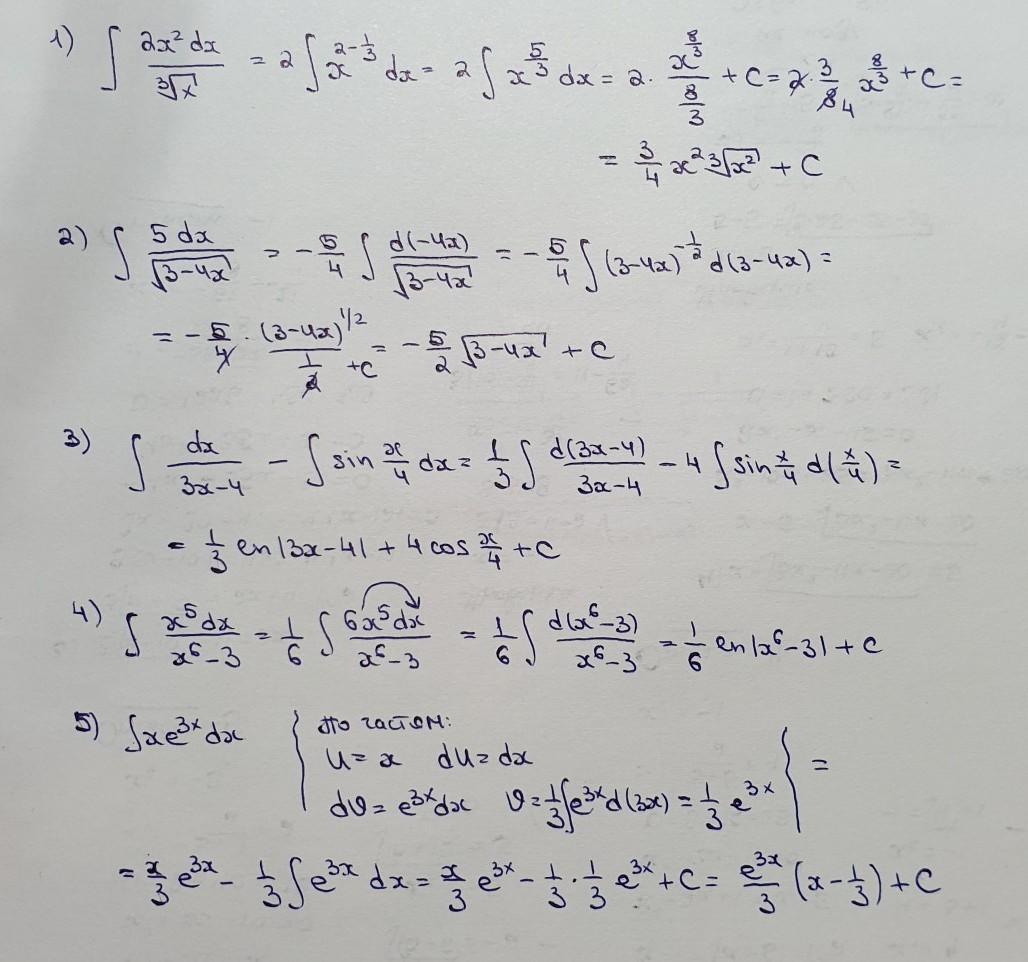 1) ∫ 2x² dx / ∛x = 2 ∫ x^(2-1/3) dx = 2 ∫ x^(5/3) dx = 2 · x^(8/3) / (8/3) + C = 2 · 3/8 4 x^(8/3) + C =
= 3/4 x² ∛x² + C
2) ∫ 5 dx / √(3-4x) = - 5/4 ∫ d(-4x) / √(3-4x) = - 5/4 ∫ (3-4x)^(-1/2) d(3-4x) =
= - 5/4 · (3-4x)^(1/2) / (1/2) + C = - 5/2 √(3-4x) + C
3) ∫ dx / (3x-4) - ∫ sin x/4 dx = 1/3 ∫ d(3x-4) / (3x-4) - 4 ∫ sin x/4 d(x/4) =
= 1/3 ln|3x-4| + 4 cos x/4 + C
4) ∫ x⁵ dx / (x⁶-3) = 1/6 ∫ 6x⁵ dx / (x⁶-3) = 1/6 ∫ d(x⁶-3) / (x⁶-3) = 1/6 ln|x⁶-3| + C
5) ∫ x e^(3x) dx { по частям:
u = x du = dx
dv = e^(3x) dx v = 1/3 ∫ e^(3x) d(3x) = 1/3 e^(3x) } =
= x/3 e^(3x) - 1/3 ∫ e^(3x) dx = x/3 e^(3x) - 1/3 · 1/3 e^(3x) + C = e^(3x)/3 (x - 1/3) + C